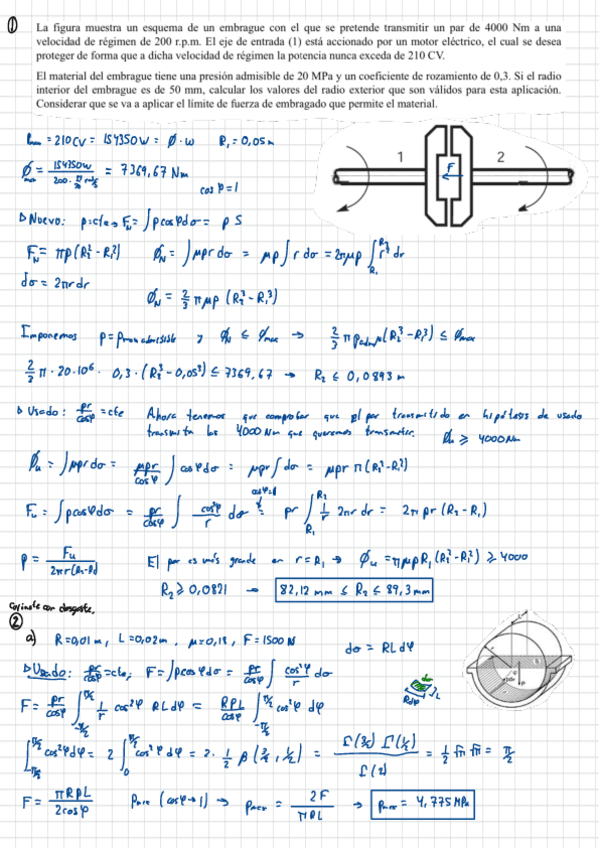 ①
La figura muestra un esquema de un embrague con el que se pretende transmitir un par de 4000 Nm a una
velocidad de régimen de 200 r.p.m. El eje de entrada (1) está accionado por un motor eléctrico, el cual se desea
proteger de forma que a dicha velocidad de régimen la potencia nunca exceda de 210 CV.
El material del embrague tiene una presión admisible de 20 MPa y un coeficiente de rozamiento de 0,3. Si el radio
interior del embrague es de 50 mm, calcular los valores del radio exterior que son válidos para esta aplicación.
Considerar que se va a aplicar el límite de fuerza de embragado que permite el material.
= 210 CV = 154350 W = ϕ · ω   R₁ = 0,05 m
ϕmax = 154350 W / 200 · π/30 rad/s = 7369,67 Nm
cos φ = 1
1 F 2
▷ Nuevo: p = cte → F_N = ∫ p cos φ dσ = p S
F_N = π p (R₂² - R₁²)   ϕ_N = ∫ μ p r dσ = μ p ∫ r dσ = 2π μ p ∫_{R₁}^{R₂} r² dr
dσ = 2π r dr   ϕ_N = 2/3 π μ p (R₂³ - R₁³)
Imponemos p = p y ϕ_N ≤ ϕmax → 2/3 π p_adm μ (R₂³ - R₁³) ≤ ϕmax
2/3 π · 20·10⁶ · 0,3 · (R₂³ - 0,05³) ≤ 7369,67 → R₂ ≤ 0,0893 m
▷ Usado: pr/cos φ = cte   Ahora tenemos que comprobar que el par transmitido en hipótesis de usado
transmita los 4000 Nm que queremos transmitir. ϕu ≥ 4000 Nm
ϕu = ∫ μ p r dσ = μpr/cos φ ∫ cos φ dσ = μpr ∫ dσ = μpr π (R₂² - R₁²)
Fu = ∫ p cos φ dσ = pr/cos φ ∫ cos²φ/r dσ =(cos φ = 1) pr ∫_{R₁}^{R₂} 1/r 2πr dr = 2π pr (R₂ - R₁)
p = Fu / 2πr(R₂-R₁)   El par es más grande en r = R₁ → ϕu = π μ p R₁ (R₂² - R₁²) ≥ 4000
R₂ ≥ 0,0821 → 82,12 mm ≤ R₂ ≤ 89,3 mm
Cojinete con desgaste.
②
a) R = 0,01 m, L = 0,02 m, μ = 0,18, F = 1500 N   dσ = R L dφ
▷ Usado: pr/cos φ = cte, F = ∫ p cos φ dσ = pr/cos φ ∫ cos²φ/r dσ
dσ L Rdφ
F = pr/cos φ ∫_{-π/2}^{π/2} 1/r cos²φ RL dφ = RPL/cos φ ∫_{-π/2}^{π/2} cos²φ dφ
∫_{-π/2}^{π/2} cos²φ dφ = 2 ∫_0^{π/2} cos²φ dφ = 2 · 1/2 β (3/2, 1/2) = Γ(3/2) Γ(1/2) / Γ(2) = 1/2 √π √π = π/2
F = πRPL / 2cos φ   pmax (cos φ → 1) → pmax = 2F / πRL → pmax = 4,775 MPa